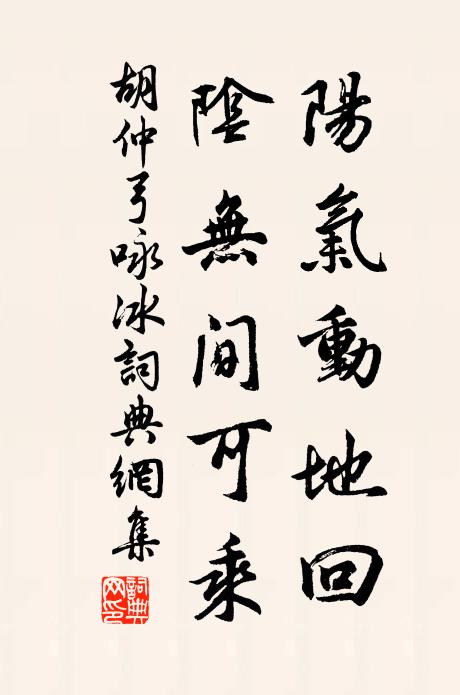 陽氣動地回
陰無間可乘
胡仲弓咏冰詞典網集
詞典網印